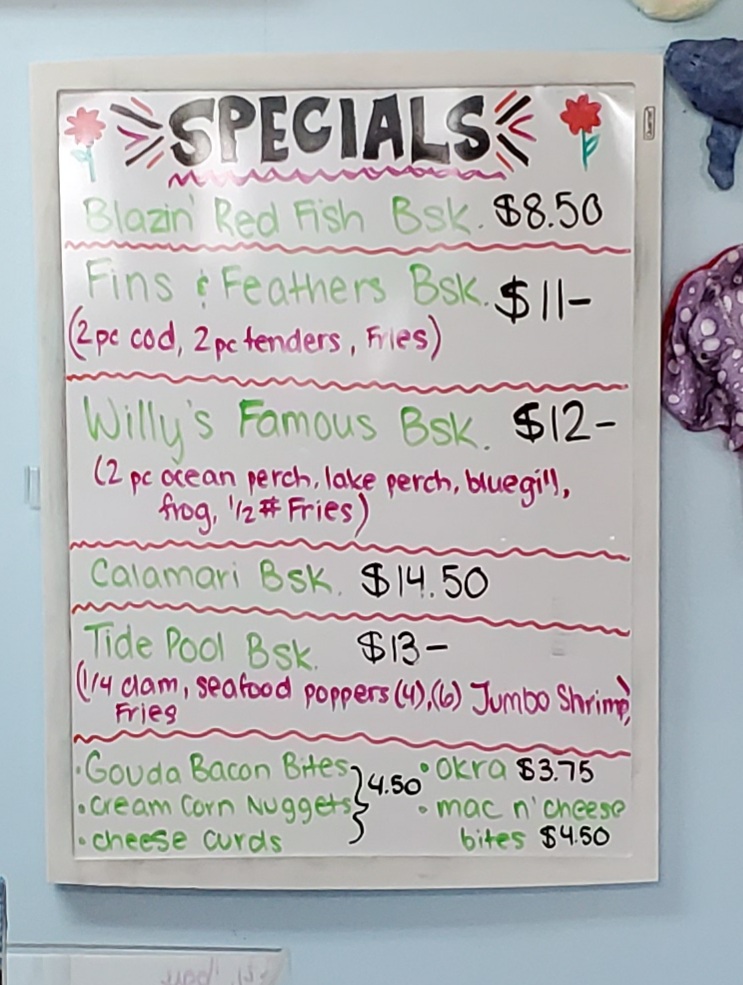 SPECIALS
Blazin' Red Fish Bsk. $8.50
Fins & Feathers Bsk. $11-
(2pc cod, 2pc tenders, Fries)
Willy's Famous Bsk. $12-
(2 pc ocean perch, lake perch, bluegill,
frog, 1/2 # Fries)
Calamari Bsk. $14.50
Tide Pool Bsk. $13-
(1/4 clam, seafood poppers (4), (6) Jumbo Shrimp)
Fries
• Gouda Bacon Bites } 4.50 • Okra $3.75
• Cream Corn Nuggets • mac n' cheese
• cheese curds bites $4.50